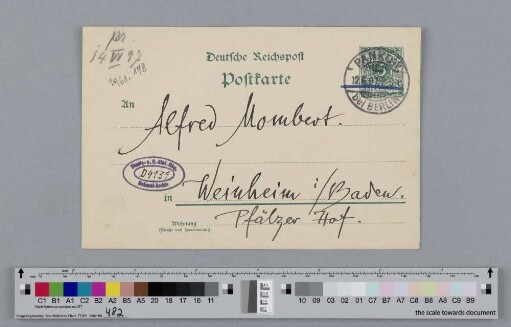 pr.
14 VI 97
1961.198
Deutsche Reichspost
Postkarte
PANKOW
bei BERLIN
5
An
Alfred Mombert.
D4131
in Weinheim i/Baden.
Wohnung
(Straße und Hausnummer)
Pfälzer Hof.
C1 B1 A1 C2 B2 A2 B5 A5 20 18 17 16 11
10 09 03 02 01 C7 A7 C8 B8 A8 C9 B9
482
the scale towards document